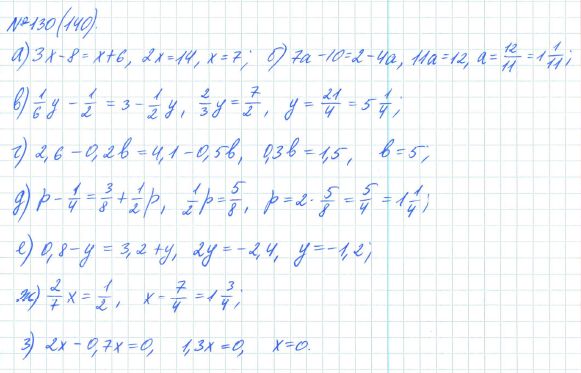 №130(140).
а) 3x-8=x+6, 2x=14, x=7; б) 7a-10=2-4a, 11a=12, a=12/11=1 1/11;
в) 1/6 y - 1/2 = 3 - 1/2 y, 2/3 y = 7/2, y = 21/4 = 5 1/4;
г) 2,6-0,2в=4,1-0,5в, 0,3в=1,5, в=5;
д) p - 1/4 = 3/8 + 1/2 p, 1/2 p = 5/8, p = 2 · 5/8 = 5/4 = 1 1/4;
е) 0,8-y = 3,2+y, 2y=-2,4, y=-1,2;
ж) 2/7 x = 1/2, x - 7/4 = 1 3/4;
з) 2x - 0,7x=0, 1,3x=0, x=0.